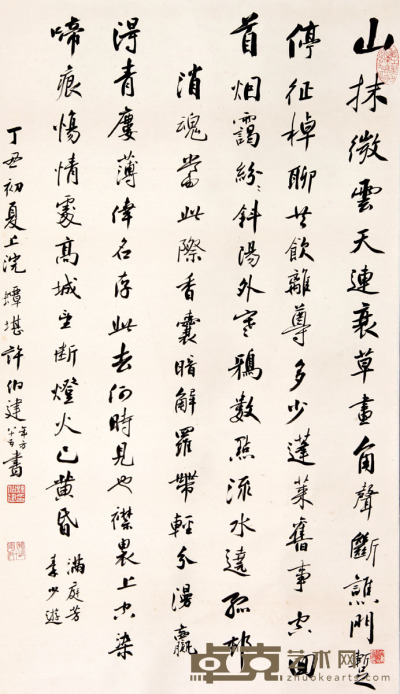 山抹微雲天連衰草畫角聲斷譙門暫
停征棹聊共飲離尊多少蓬萊舊事空回
首烟靄紛〻斜陽外寒鴉數點流水遶孤邨
消魂當此際香囊暗解羅帶輕分漫贏
得青廔薄倖名存此去何時見也襟褏上空染
啼痕傷情處高城望斷燈火已黄昏
滿庭芳
秦少游
丁丑初夏上浣蟫堪許伯建年方八五書
卓克艺术网
www.zhuokearts.com